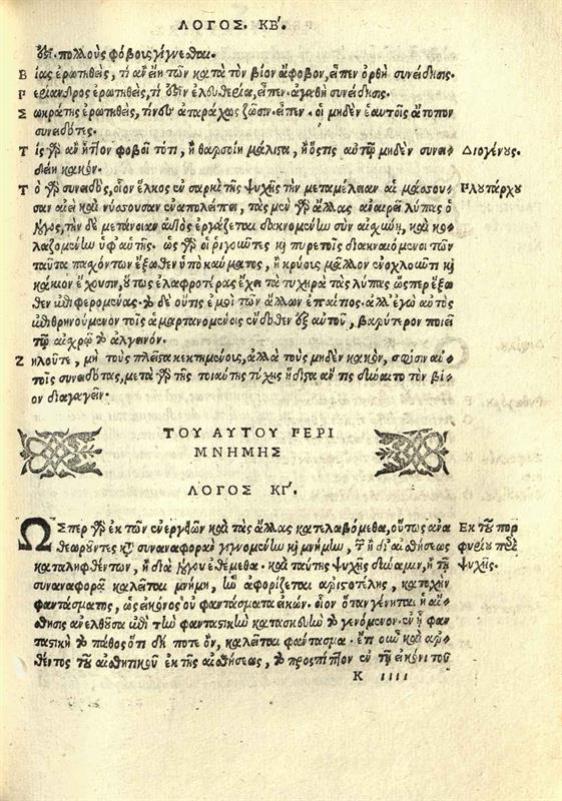 ΛΟΓΟΣ. ΚΒ'.
ὅτι πολλοὺς φόβοις γίγνεσθαι.
Βίας ἐρωτηθεὶς, τί ἂν εἴη τῶν κατὰ τὸν βίον ἄφοβον, εἶπεν ὀρθὴ συνείδησις.
Περίανδρος ἐρωτηθεὶς, τί ἐστὶν ἐλευθερία, εἶπεν· ἀγαθὴ συνείδησις.
Σωκράτης ἐρωτηθεὶς, τίνες ἀταράχως ζῶσιν. εἶπεν· οἱ μηδὲν ἑαυτοῖς ἄτοπον
συνειδότες.
Τίς γὰρ ἂν ἧττον φοβοῖτό τι, ἢ θαρσοίη μάλιστα, ἢ ὅστις αὑτῷ μηδὲν συνει- Διογένους.
δείη κακόν.
Τὸ γὰρ συνειδὸς, οἷον ἕλκος ἐν σαρκὶ τῆς ψυχῆς τὴν μεταμέλειαν αἱμάσσου- Πλυτάρχου
σαν αἰεὶ καὶ νύσσουσαν ἐναπολείπει, τὰς μὲν γὰρ ἄλλας ἀναιρεῖ λύπας ὁ
λόγος, τὴν δὲ μετάνοιαν αὐτὸς ἐργάζεται δακνομένου σὺν αἰσχύνῃ, καὶ κο-
λαζομένου ὑφ' αὑτῆς. ὡς γὰρ οἱ ῥιγοῦντες καὶ πυρετοῖς διακναιόμενοι τῶν
ταῦτα πασχόντων ἔξωθεν ὑπὸ καύματος, ἢ κρύους μᾶλλον ἐνοχλοῦντι καὶ
κάκιον ἔχουσιν, οὕτως ἐλαφροτέρας ἔχει τὰ τυχηρὰ τὰς λύπας ὥσπερ ἔξω
θεν ἐπιφερομένας. τὸ δὲ οὔτις ἐμοὶ τῶν ἄλλων ἐπαίτιος· ἀλλ' ἐγὼ αὐτὸς
ἐπιθρηνούμενον τοῖς ἁμαρτανομένοις ἔνδοθεν ἐξ αὐτοῦ, βαρύτερον ποιεῖ
τῷ αἰσχρῷ τὸ ἀλγεινόν.
Ζηλοῦτε, μὴ τοὺς πλεῖστα κεκτημένους, ἀλλὰ τοὺς μηδὲν κακὸν, σφίσιν αὐ-
τοῖς συνειδότας, μετὰ γὰρ τῆς τοιαύτης τύχης ἥδιστα ἄν τις δύναιτο τὸν βί-
ον διαγαγεῖν.
ΤΟΥ ΑΥΤΟΥ ΠΕΡΙ
ΜΝΗΜΗΣ
ΛΟΓΟΣ ΚΓ'.
Ὥσπερ γὰρ ἐκ τῶν ἐνεργειῶν καὶ τὰς ἄλλας κατελαβόμεθα, οὕτως ἀνα Ἐκ τοῦ πορ
θεωροῦντες κατὰ συναναφορὰν γιγνομένην καὶ μνήμην, τῶν ἢ δι' αἰσθήσεως φυρίου περὶ
καταληφθέντων, ἢ διὰ λόγου ἐθέμεθα. καὶ ταύτης ψυχῆς δύναμιν, ἡ τῇ ψυχῆς.
συναναφορᾷ καλεῖται μνήμη, ἣν ἀφορίζεται ἀριστοτέλης, κατοχὴν
φαντάσματος, ὡς εἰκόνος οὗ φαντάσματα εἰκών. οἷον ὅταν γένηται ἡ αἴ-
σθησις ἀνελθοῦσα ἐπὶ τὴν φανταστικὴν κατασκευὴν τὸ γενόμενον ἐν ᾗ φαν
ταστικῇ τὸ πάθος ὅτι δή ποτε ὂν, καλεῖται φάντασμα. ἐπ' οὖν καὶ αἰσ-
θέντος τοῦ αἰσθητικοῦ ἐκ τῆς αἰσθήσεως, τὸ προσπῖπτον ἐν τῇ εἰκόνι τοῦ
Κ ΙΙΙΙ